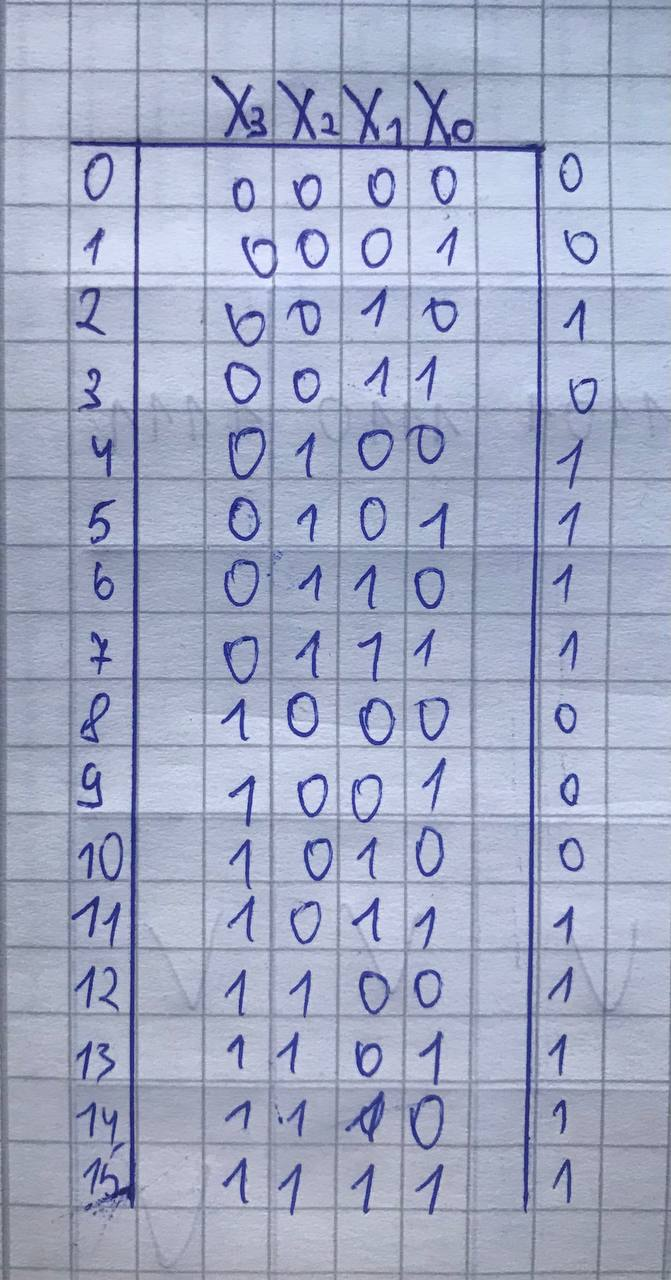 X3 X2 X1 X0
0 0 0 0 0 0
1 0 0 0 1 0
2 0 0 1 0 1
3 0 0 1 1 0
4 0 1 0 0 1
5 0 1 0 1 1
6 0 1 1 0 1
7 0 1 1 1 1
8 1 0 0 0 0
9 1 0 0 1 0
10 1 0 1 0 0
11 1 0 1 1 1
12 1 1 0 0 1
13 1 1 0 1 1
14 1 1 1 0 1
15 1 1 1 1 1